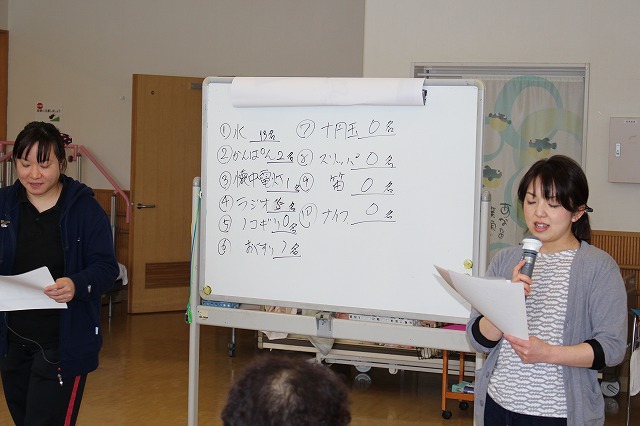 ① 水 13名
② かんぱん 2名
③ 懐中電灯 1名
④ ラジオ 5名
⑤ ノコギリ 0名
⑥ おくすり 1名
⑦ 十円玉 0名
⑧ スリッパ 0名
⑨ 笛 0名
⑩ ナイフ 0名